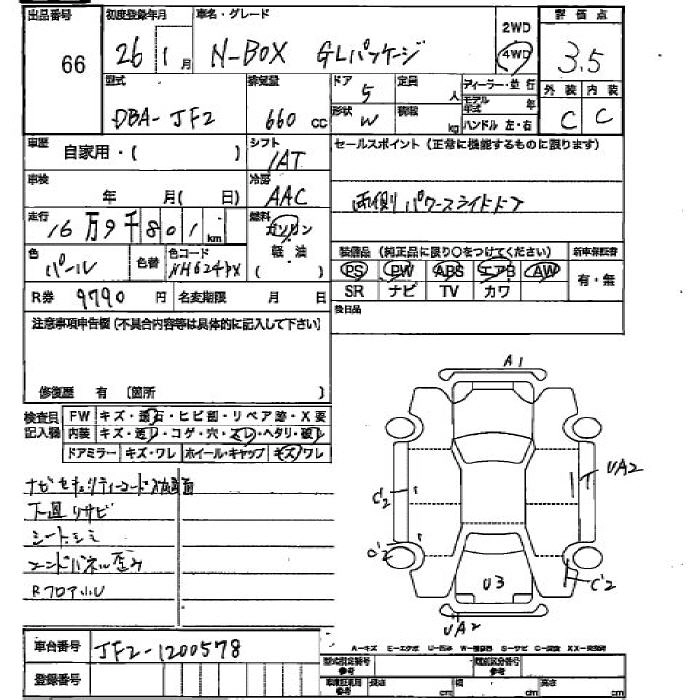 出品番号 初度登録年月 車名・グレード 評価点
66 26 1月 N-BOX GLパッケージ 2WD 4WD 3.5
型式 排気量 ドア 定員 ディーラー・並行 外装 内装
DBA-JF2 660cc 5 人 モデル年式 年 C C
形状 W 積載 kg ハンドル 左・右
車歴 自家用・( ) シフト 1AT セールスポイント (正常に機能するものに限ります)
車検 年 月( 日) 冷房 AAC 両側パワースライドドア
走行 16万9千801km 燃料 ガソリン 軽油 ( )
色 パール 色替 色コード NH624PX
装備品 (純正品に限り○をつけてください) 新車保証書
PS PW ABS エアB AW 有・無
SR ナビ TV カワ
R券 9790円 名変期限 月 日 後日品
注意事項申告欄(不具合内容等は具体的に記入して下さい)
修復歴 有 (箇所 )
検査員記入欄 FW キズ・透石・ヒビ割・リペア跡・X要
内装 キズ・透・コゲ・穴・スレ・ヘタリ・破レ
ドアミラー キズ・ワレ ホイール・キャップ キズ/ワレ
ナビセキュリティーコード
下廻りサビ
シートシミ
エンドパネル歪み
Rフロア小U
A1
UA2
C'2
C'2
C'2
U3
UA2
車台番号 JF2-1200578
登録番号
A-キズ E-エクボ U-凹み W-補修跡 S-サビ C-腐食 XX-交換済
型式指定番号 参考 類別区分番号 参考
参考 長さ cm 幅 cm 高さ cm